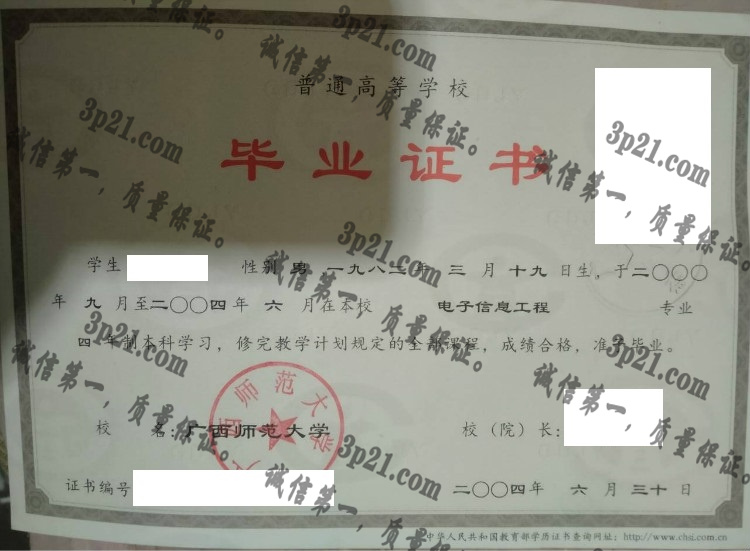 普通高等学校
毕业证书
学生 性别 男 , 一九八二年 三 月 十九 日生, 于二〇〇〇
年 九 月至二〇〇四年 六 月在本校 电子信息工程 专业
四 年制本科学习, 修完教学计划规定的全部课程, 成绩合格, 准予毕业。
广西师范大学
校 名: 广西师范大学 校（院）长:
证书编号 二〇〇四年 六 月 三十 日
中华人民共和国教育部学历证书查询网址: http://www.chsi.com.cn
3p21.com
诚信第一，质量保证。
3p21.com
诚信第一，质量保证。
3p21.com
诚信第一，质量保证。
3p21.com
诚信第一，质量保证。
3p21.com
诚信第一，质量保证。
3p21.com
诚信第一，质量保证。
3p21.com
诚信第一，质量保证。
3p21.com
诚信第一，质量保证。